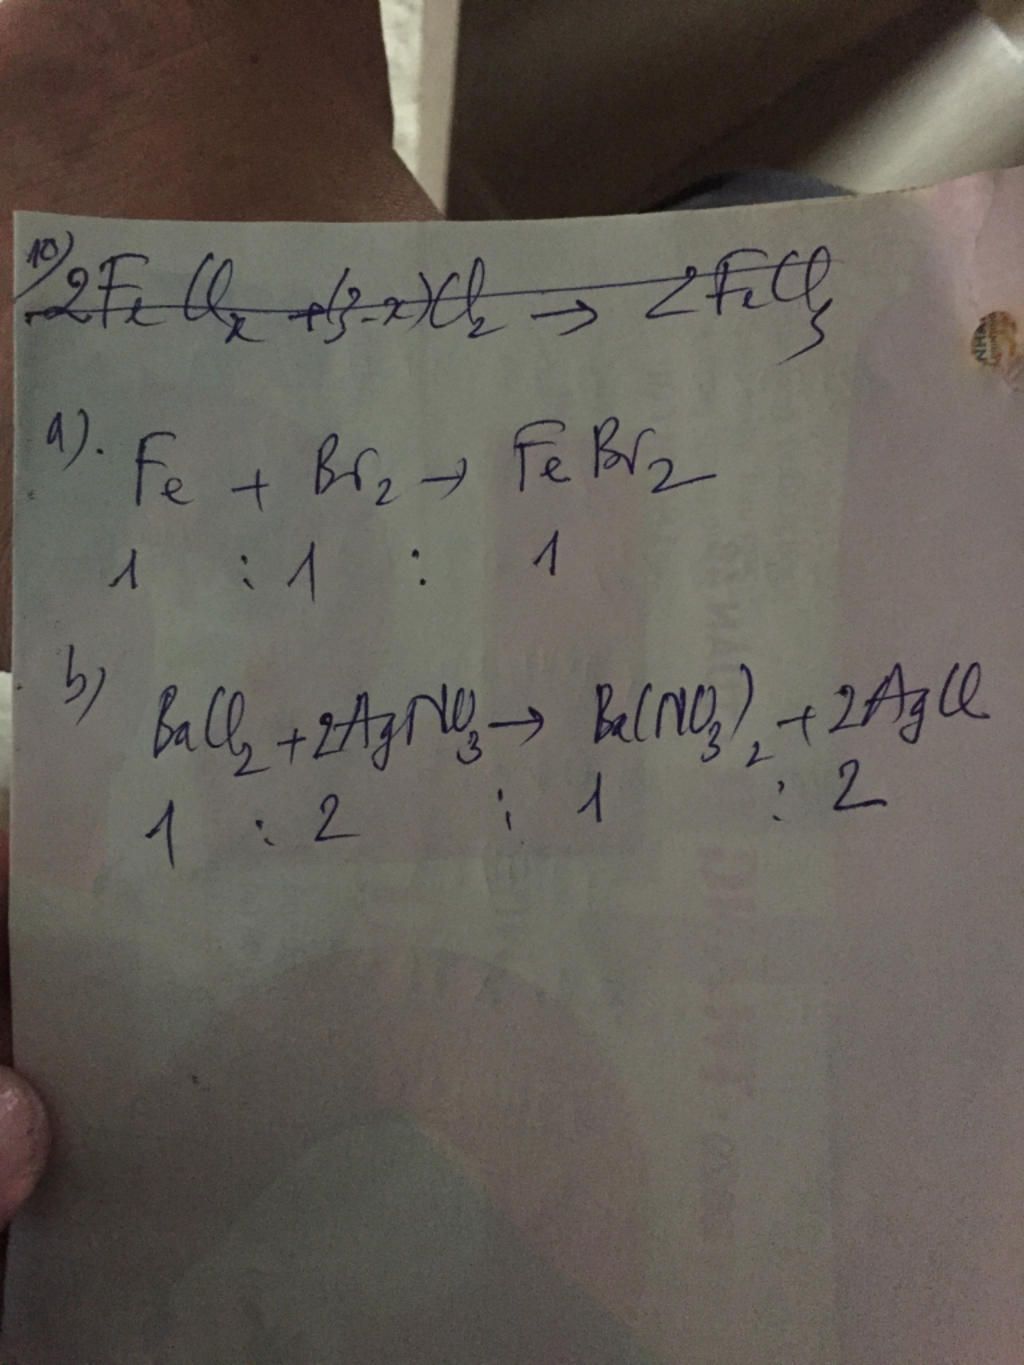 10) 2FeClₓ + (3-x)Cl₂ → 2FeCl₃
a). Fe + Br₂ → FeBr₂
1 : 1 : 1
b) BaCl₂ + 2AgNO₃ → Ba(NO₃)₂ + 2AgCl
1 : 2 : 1 : 2